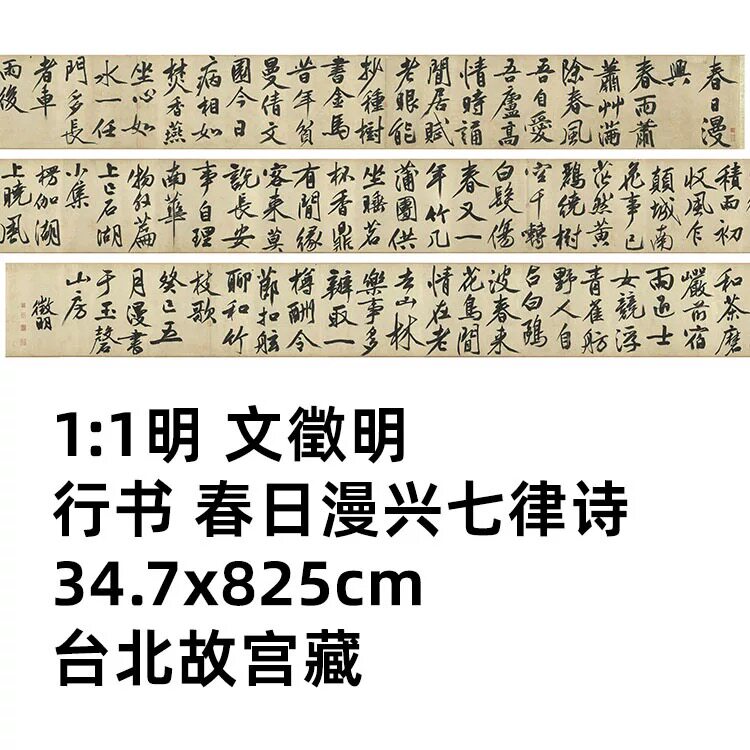 春日漫
興
春雨蕭
蕭艸滿
除春風
吾自愛
吾廬高
情時誦
閒居賦
老眼能
抄種樹
書金馬
昔年貧
曼倩文
園今日
病相如
焚香燕
坐心如
水一任
門多長
者車
雨後
積雨初
收風乍
顛城南
花事已
茫然黄
鸝繞樹
空千囀
白髮傷
春又一
年竹几
蒲團供
坐睡茗
杯香鼎
有閒緣
客來莫
說長安
事自理
南華
物外篇
上巳石湖
小集
楞伽湖
上曉風
和茶磨
巖前宿
雨過士
女競浮
青雀舫
野人自
占白鷗
波春來
花鳥閒
情在老
去山林
樂事多
辦取一
樽酬令
節扣舷
聊和竹
枝歌
癸巳五
月漫書
于玉磬
山房
徵明
1:1明 文徵明
行书 春日漫兴七律诗
34.7x825cm
台北故宫藏